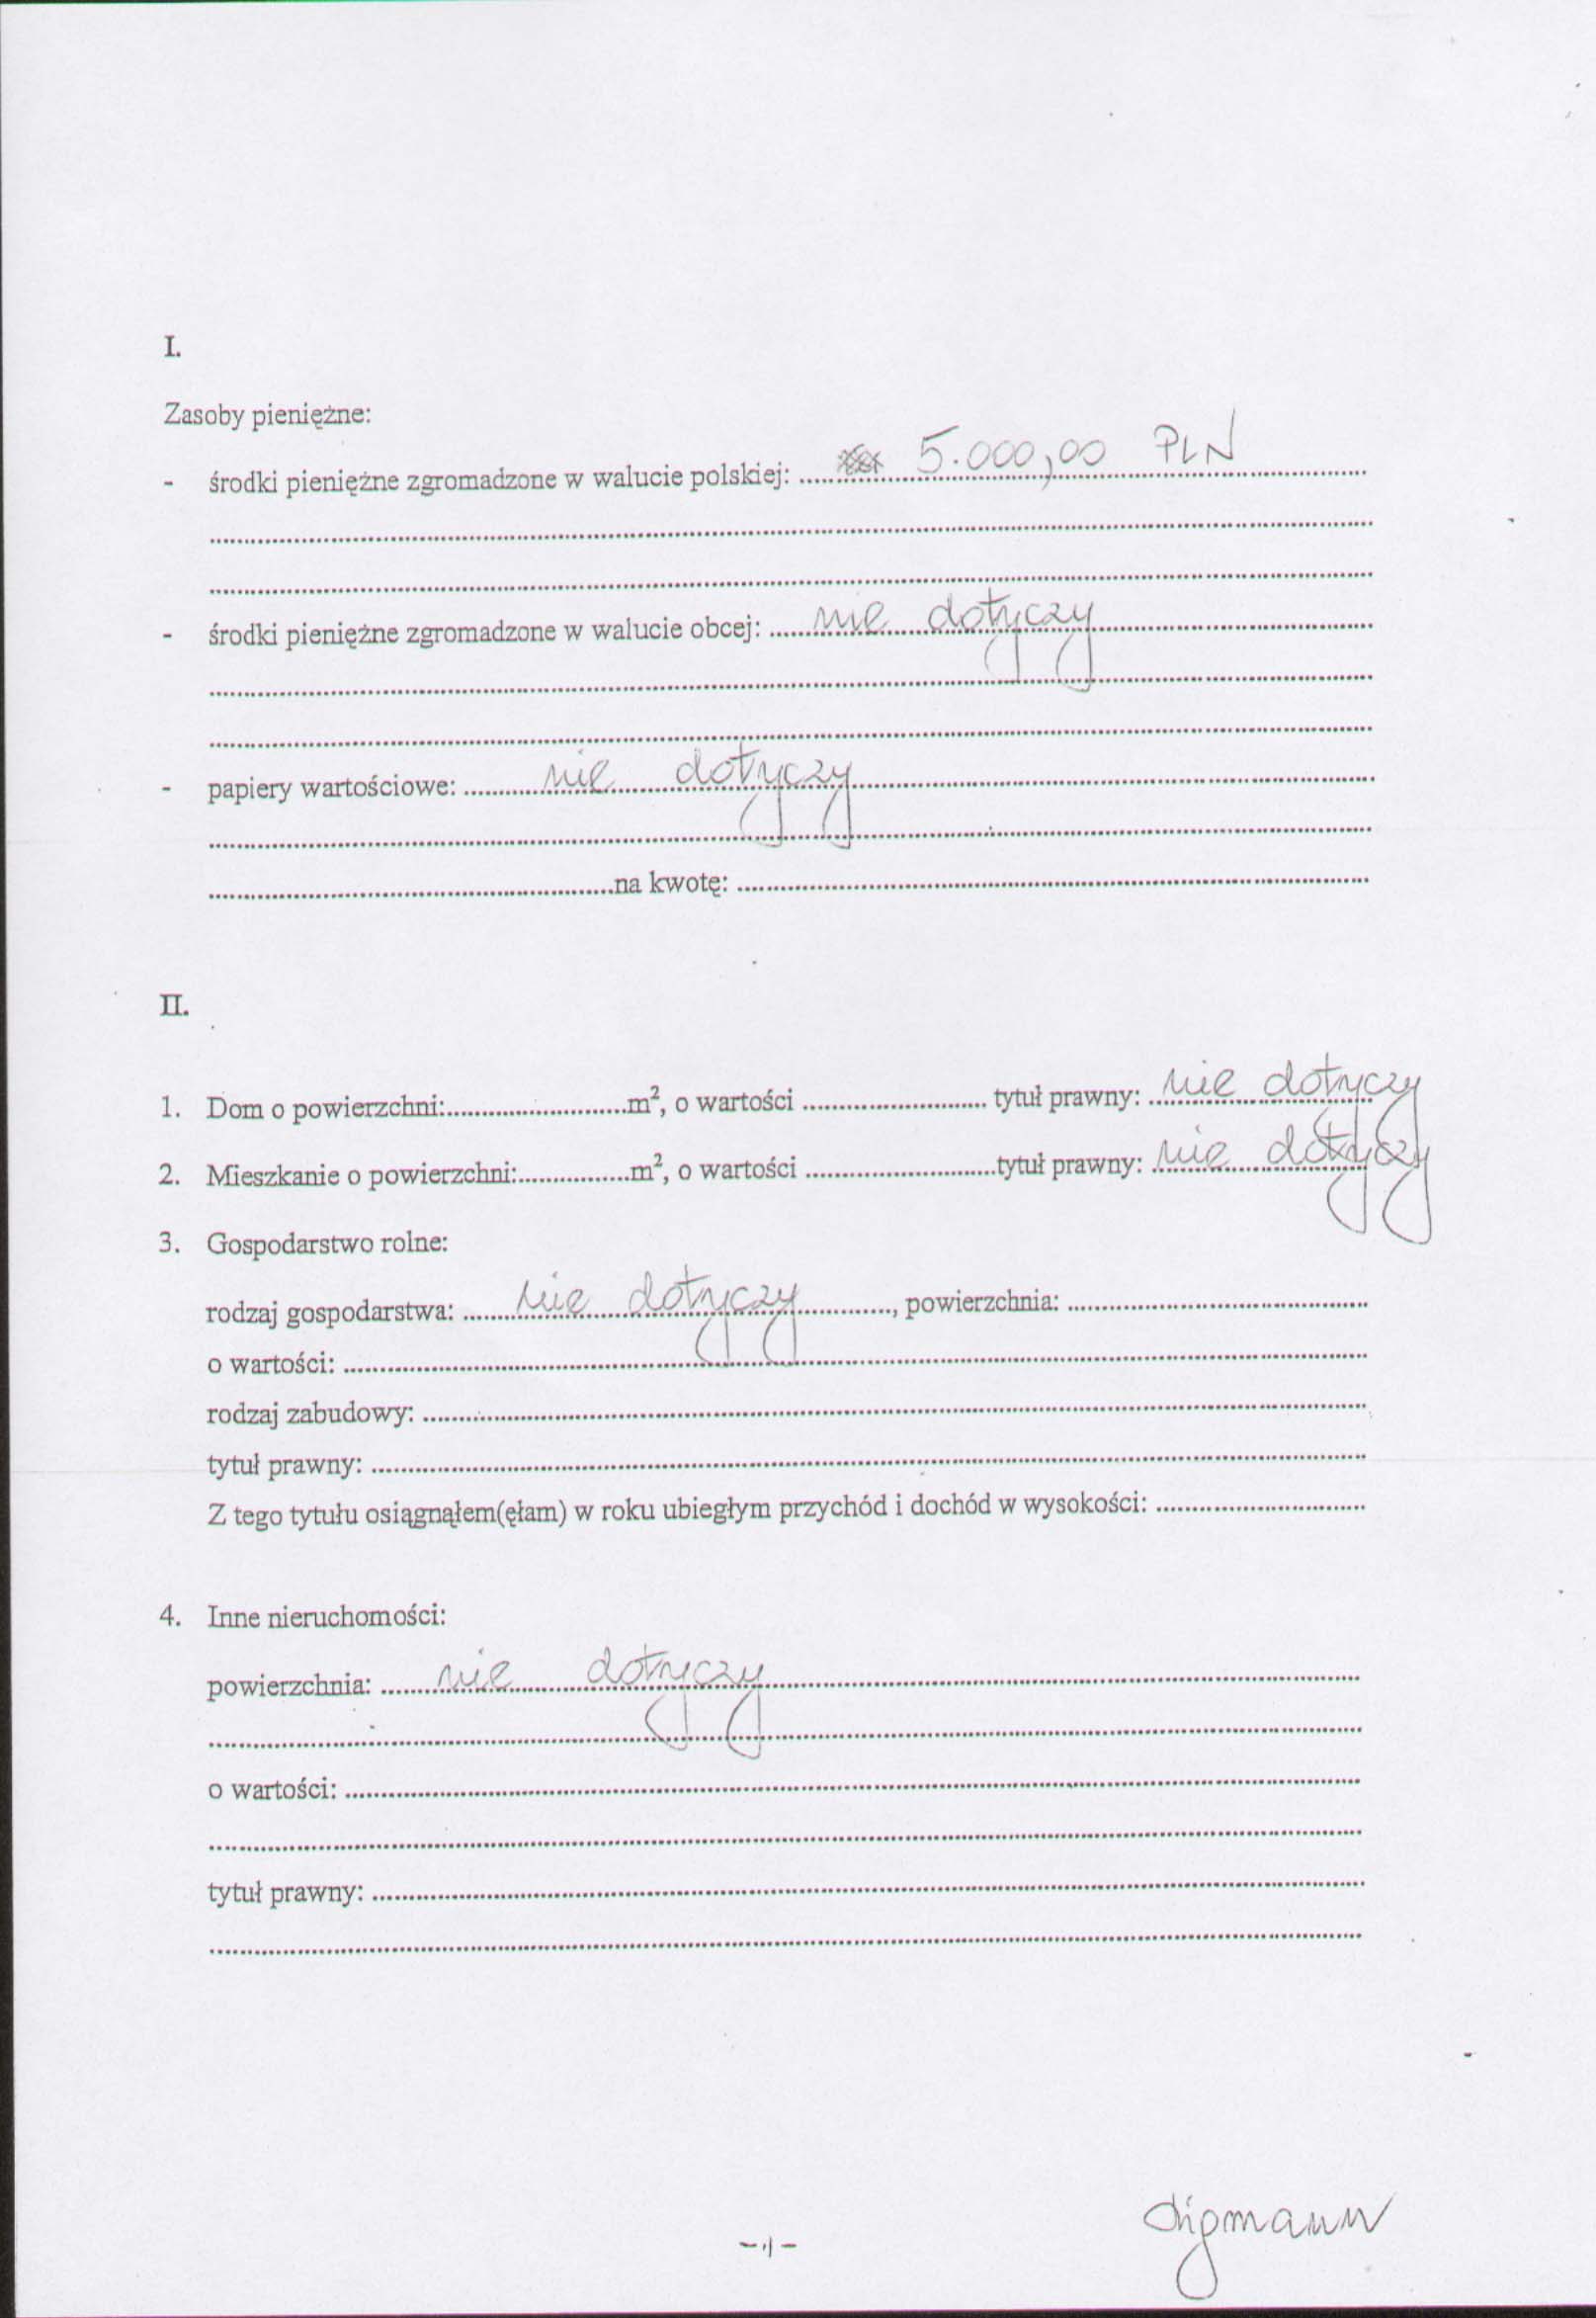 I.
Zasoby pieniężne:
- środki pieniężne zgromadzone w walucie polskiej: ........ 5.000,00 PLN ........
........
........
- środki pieniężne zgromadzone w walucie obcej: ........ nie dotyczy ........
........
........
- papiery wartościowe: ........ nie dotyczy ........
........
........na kwotę: ........
II.
1. Dom o powierzchni:........m², o wartości ........ tytuł prawny: nie dotyczy
2. Mieszkanie o powierzchni:........m², o wartości ........tytuł prawny: nie dotyczy
3. Gospodarstwo rolne:
rodzaj gospodarstwa: ........ nie dotyczy ........, powierzchnia: ........
o wartości: ........
rodzaj zabudowy: ........
tytuł prawny: ........
Z tego tytułu osiągnąłem(ęłam) w roku ubiegłym przychód i dochód w wysokości: ........
4. Inne nieruchomości:
powierzchnia: ........ nie dotyczy ........
........
o wartości: ........
........
tytuł prawny: ........
........